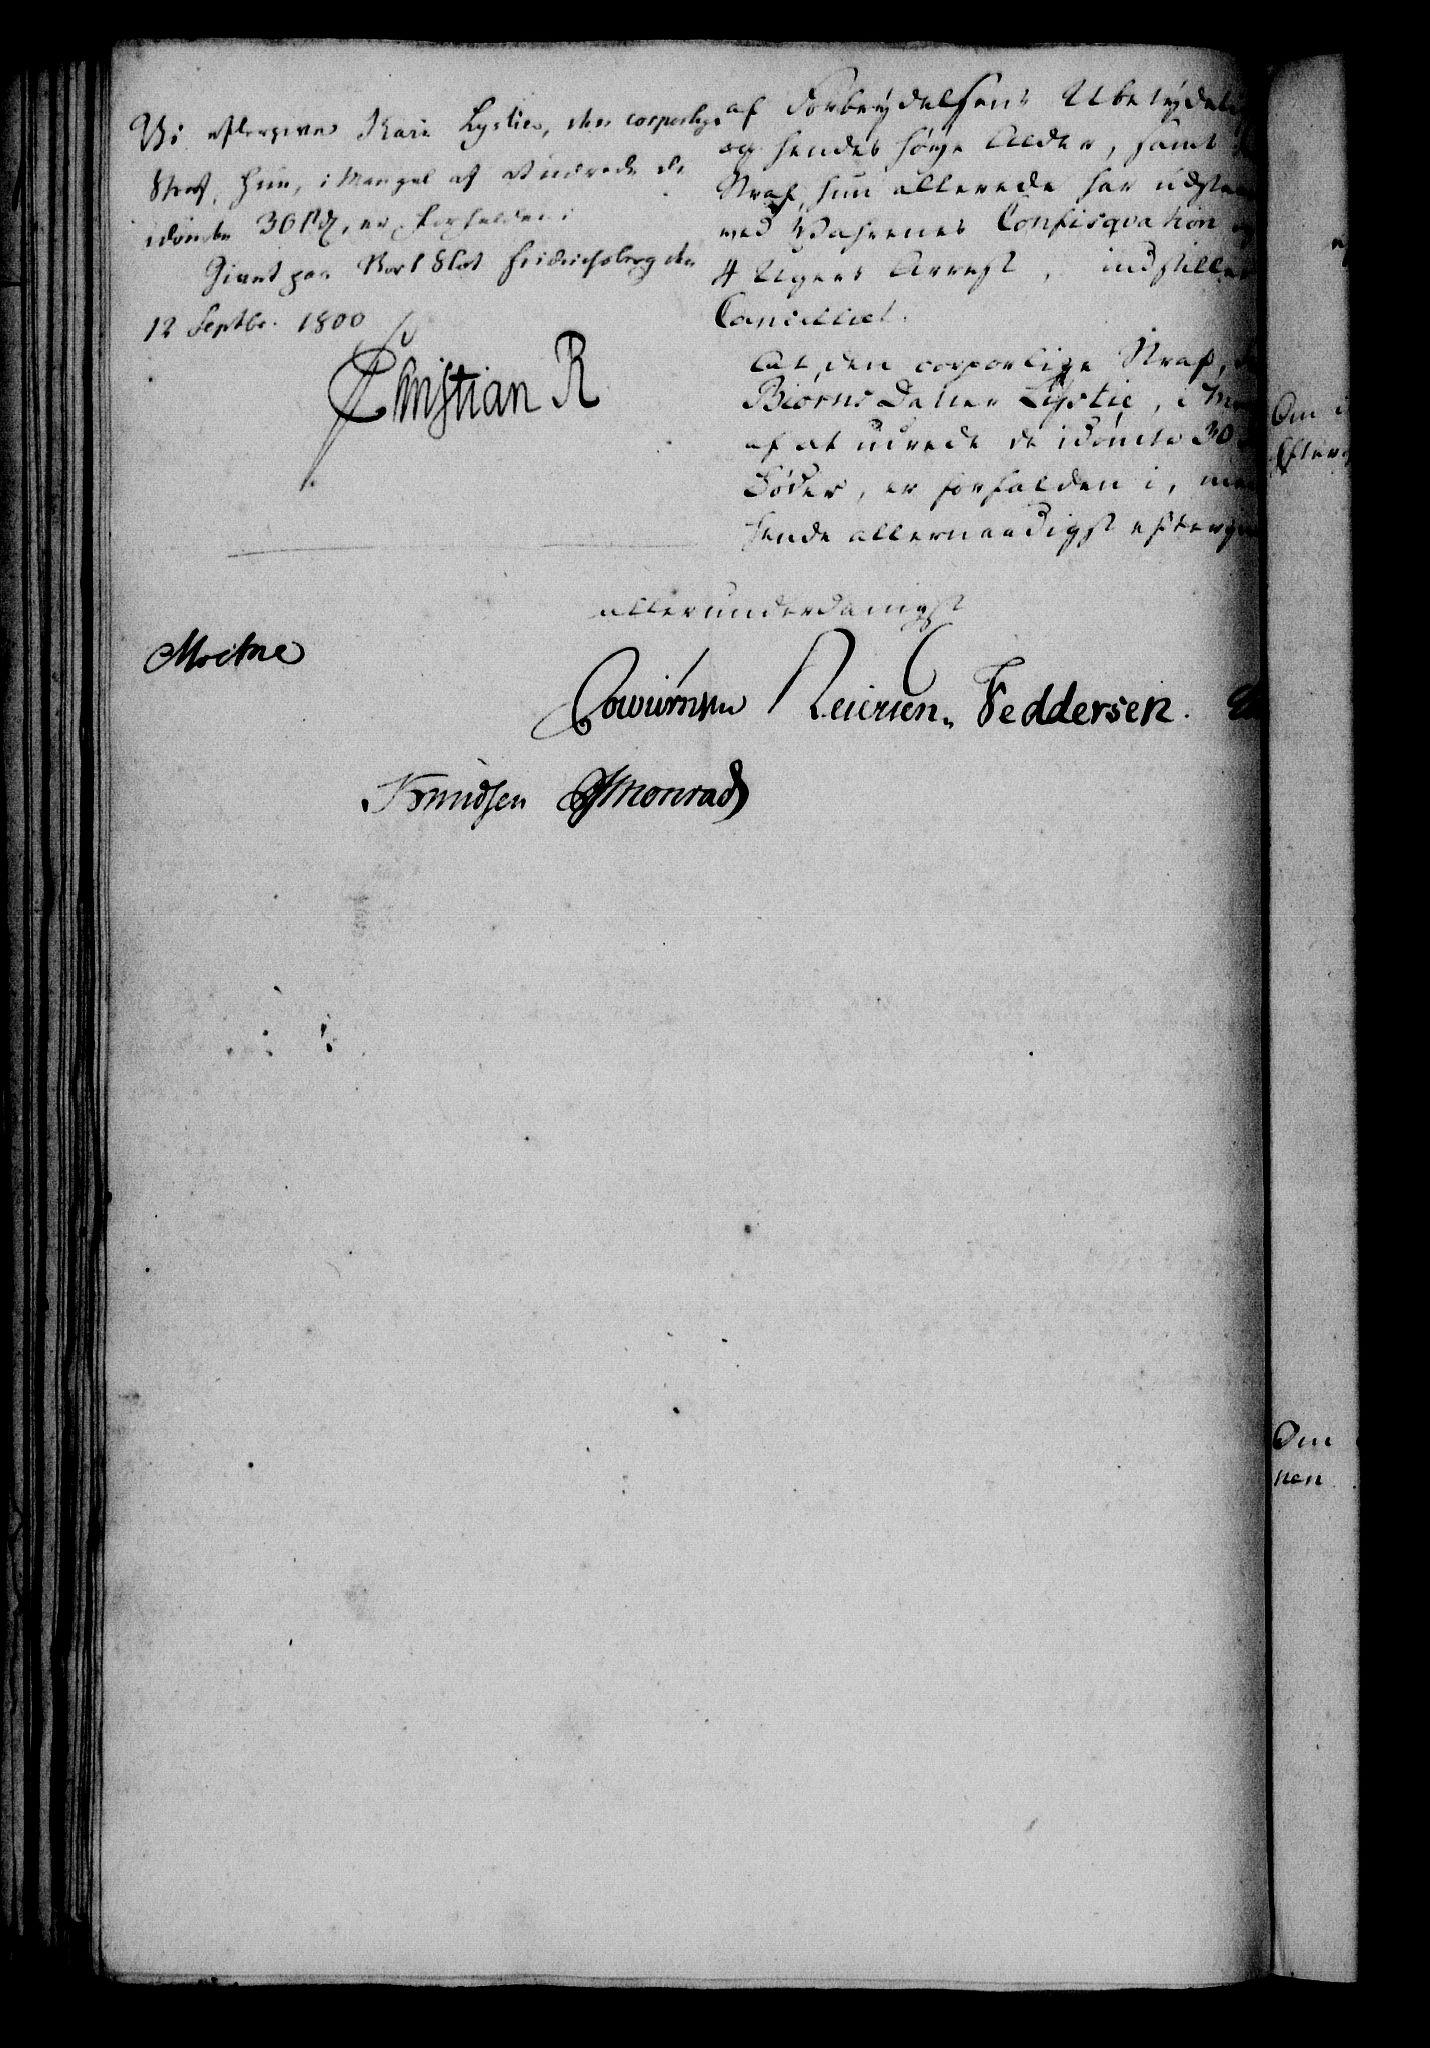 Vi eftergive Kari Lystie, den corporlige
Straf, hun, i Mangel af at udrede de
idömte 30 Rd, er forfalden i
Givet paa Vort Slot Friderichsberg den
12 Septbr. 1800
Christian R
af Forbrydelsens Ubetydelig
og hendes høye Alder, samt
Straf, hun allerede har udstaa
ved Vahrenes Confisqvation og
4 Ugers Arrest, indstiller
Cancelliet.
At den corporlige Straf,
Biörns Datter Lystie, i Man
af at udrede de idömte 30
Böder, er forfalden i, maa
hende allernaadigst eftergi
allerunderdanigst
Moltke
Cowürnsen Reiersen. Feddersen.
Knudsen Monrad
Om
Efter
Om
nen